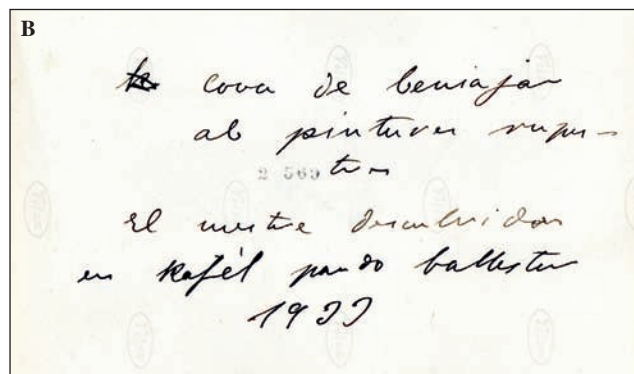 B
cova de beniajar
ab pintures rupes-
tres
2 569
El mestre descubridor
en Rafél pardo ballester
1933